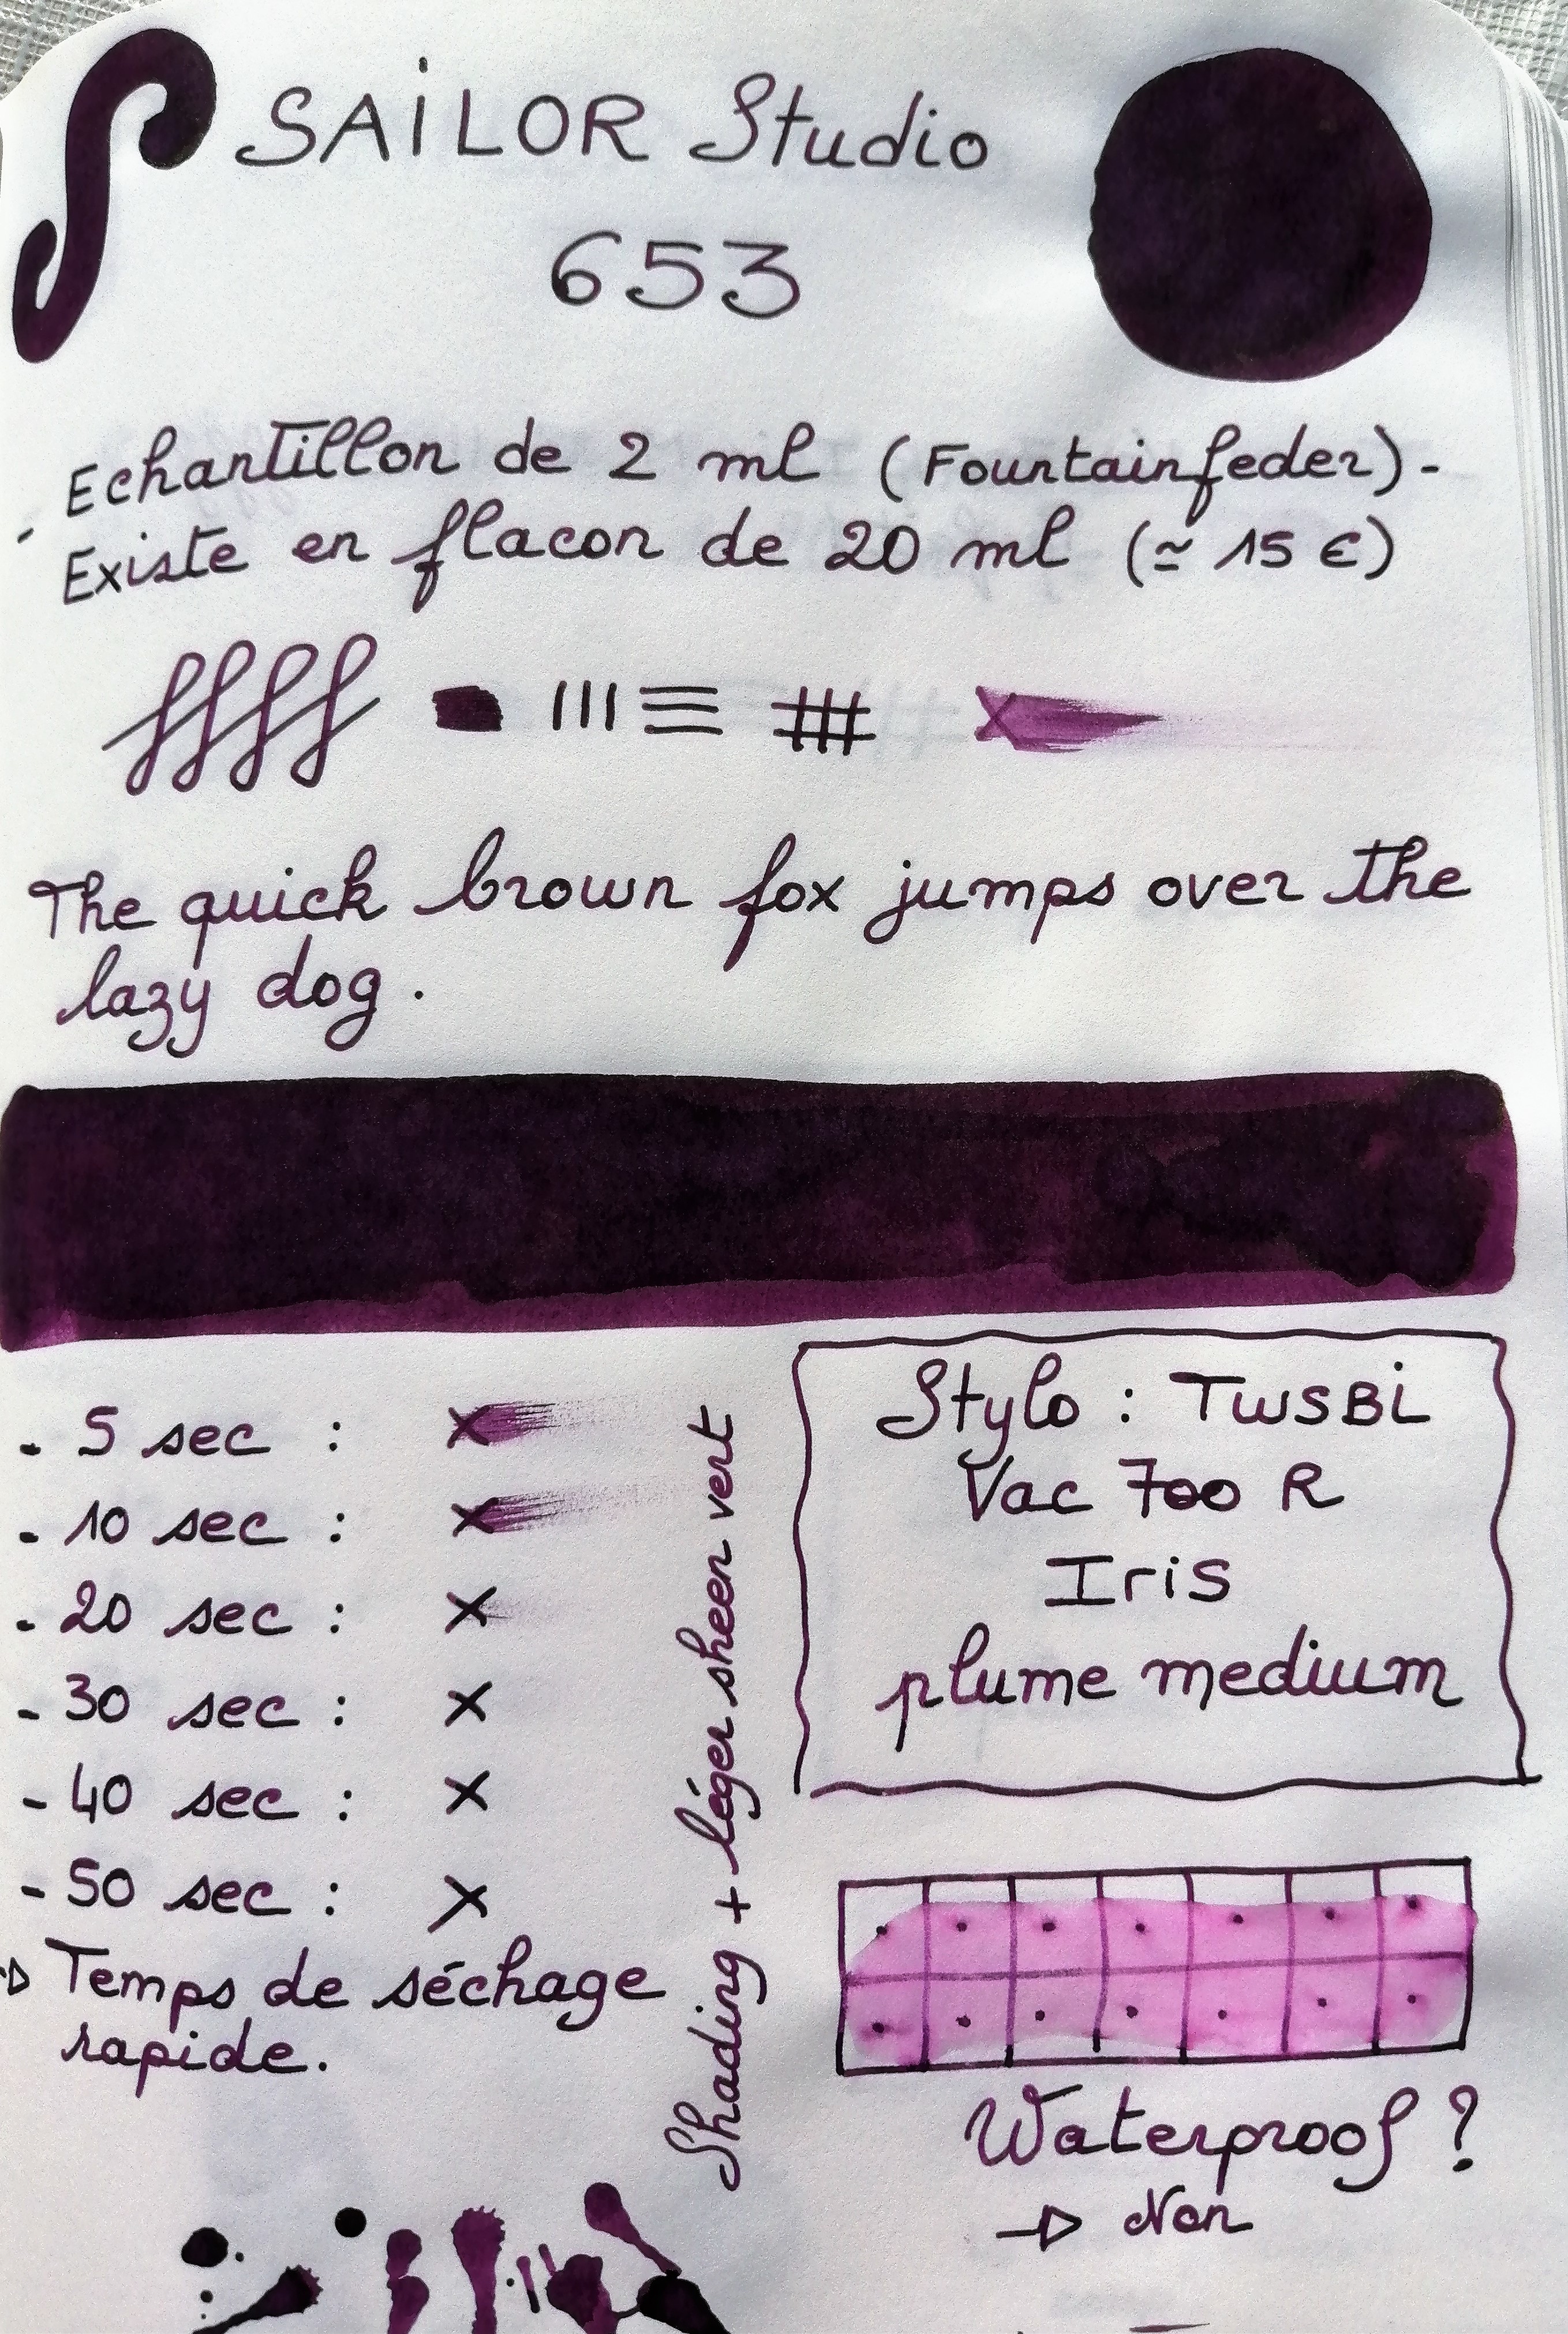 SAILOR Studio
653
Echantillon de 2 ml (Fountainfeder).
Existe en flacon de 20 ml (≃ 15 €)
The quick brown fox jumps over the
lazy dog.
- 5 sec : X
- 10 sec : X
- 20 sec : X
- 30 sec : X
- 40 sec : X
- 50 sec : X
→ Temps de séchage
rapide.
Shading + léger sheen vert
Stylo : TWSBI
Vac 700 R
Iris
plume medium
Waterproof ?
→ Non